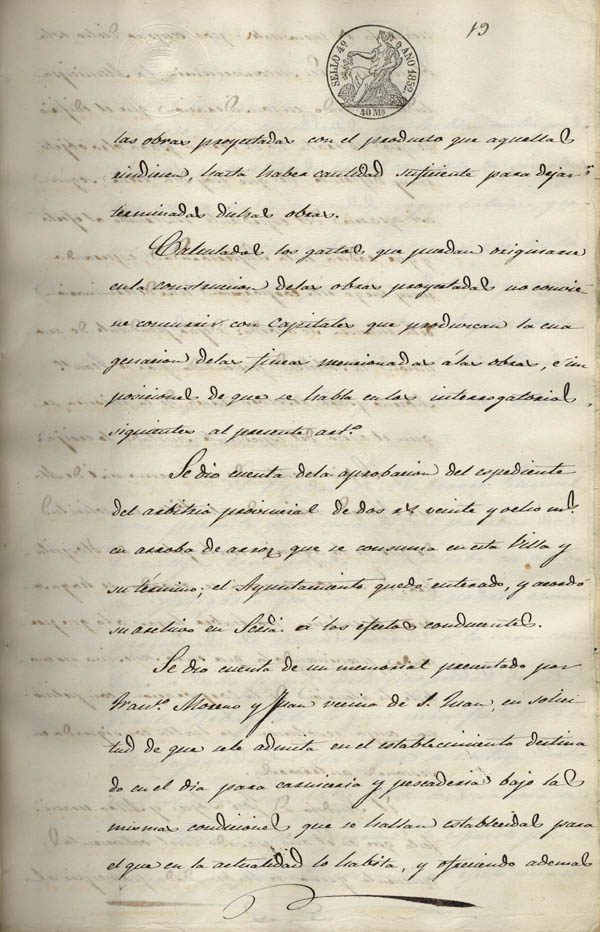 19
SELLO 4º AÑO 1852
40 Ms
las obras proyectadas con el producto que aquellas
rindiesen, hasta haber cantidad suficiente para dejar
terminadas dichas obras.
Calculados los gastos que puedan originarse
en la construccion de las obras proyectadas no convie
ne concurrir con capitales que produzcan la ena
genacion de las fincas mencionadas á las obras, é im
posiciones de que se habla en los interrogatorios,
siguientes al presente artº.
Se dio cuenta de la aprobacion del espediente
del arbitrio provincial de dos rs veinte y ocho ms.
en arroba de arroz que se consuma en esta Villa y
su término; el Ayuntamiento quedó enterado, y acordó
su archivo en Scria. á los efectos conducentes.
Se dio cuenta de un memorial presentado por
Franco. Moreno y Juan vecino de S. Juan, en solici
tud de que se le admita en el establecimiento destina
do en el dia para carniceria y pescaderia bajo las
mismas condiciones que se hallan establecidas para
el que en la actualidad lo habita, y ofreciendo ademas